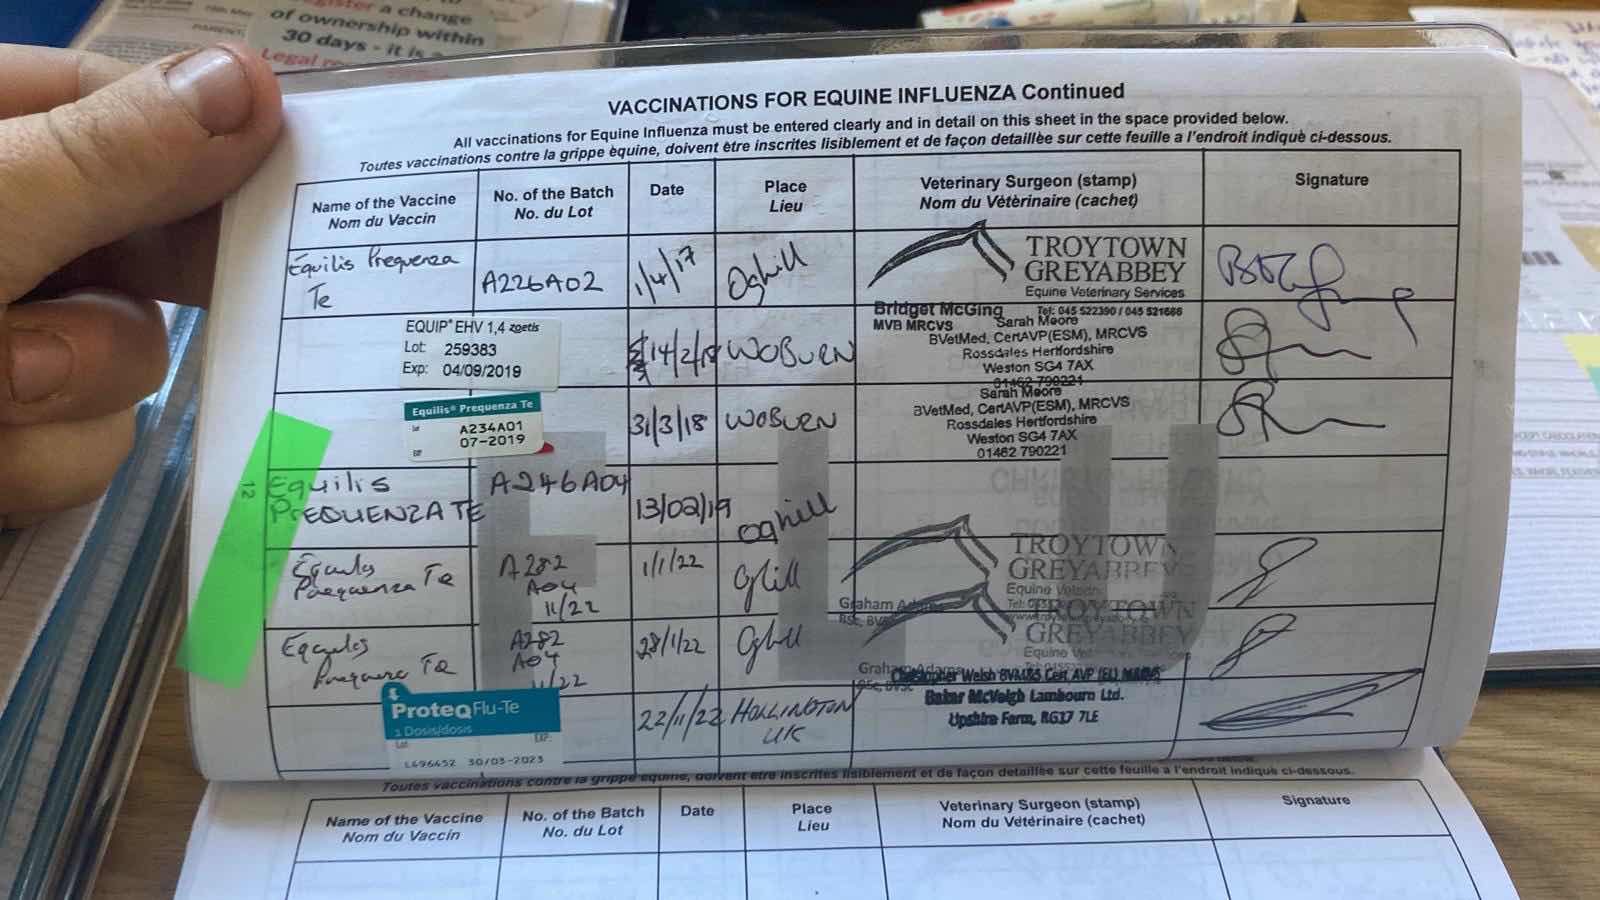 Register a change
of ownership within
30 days - it is a
Legal
VACCINATIONS FOR EQUINE INFLUENZA Continued
All vaccinations for Equine Influenza must be entered clearly and in detail on this sheet in the space provided below.
Toutes vaccinations contre la grippe équine, doivent être inscrites lisiblement et de façon detaillèe sur cette feuille a l'endroit indiquè ci-dessous.
Name of the Vaccine
Nom du Vaccin
No. of the Batch
No. du Lot
Date
Place
Lieu
Veterinary Surgeon (stamp)
Nom du Vétèrinaire (cachet)
Signature
Equilis Prequenza
Te
A226A02
1/4/17
Oghill
TROYTOWN
GREYABBEY
Equine Veterinary Services
Bridget McGing Tel: 045 522390 / 045 521686
MVB MRCVS
EQUIP® EHV 1,4 zoetis
Lot: 259383
Exp: 04/09/2019
14/2/18
WOBURN
Sarah Moore
BVetMed, CertAVP(ESM), MRCVS
Rossdales Hertfordshire
Weston SG4 7AX
01462 790221
Equilis® Prequenza Te
A234A01
07-2019
31/3/18
WOBURN
Sarah Moore
BVetMed, CertAVP(ESM), MRCVS
Rossdales Hertfordshire
Weston SG4 7AX
01462 790221
12
Equilis
PREQUENZA TE
A246A04
13/02/19
Oghill
Equilis
Prequenza Te
A282
A04
11/22
1/1/22
Oghill
TROYTOWN
GREYABBEY
Equine
Graham Adams
Equilis
Prequenza Te
A282
A04
11/22
28/1/22
Oghill
TROYTOWN
GREYABBEY
Equine
Graham Adams
ProteqFlu-Te
1 Dosis/dosis
Lot EXP:
L496452 30/03-2023
22/11/22
HOLLINGTON
UK
Christopher Welsh BVM&S Cert AVP (EL) MRCVS
Baker McVeigh Lambourn Ltd.
Upshire Farm, RG17 7LE
Toutes vaccinations contre la grippe équine, doivent être inscrites lisiblement et de façon detaillèe sur cette feuille a l'endroit indiquè ci-dessous.
Name of the Vaccine
Nom du Vaccin
No. of the Batch
No. du Lot
Date
Place
Lieu
Veterinary Surgeon (stamp)
Nom du Vétérinaire (cachet)
Signature